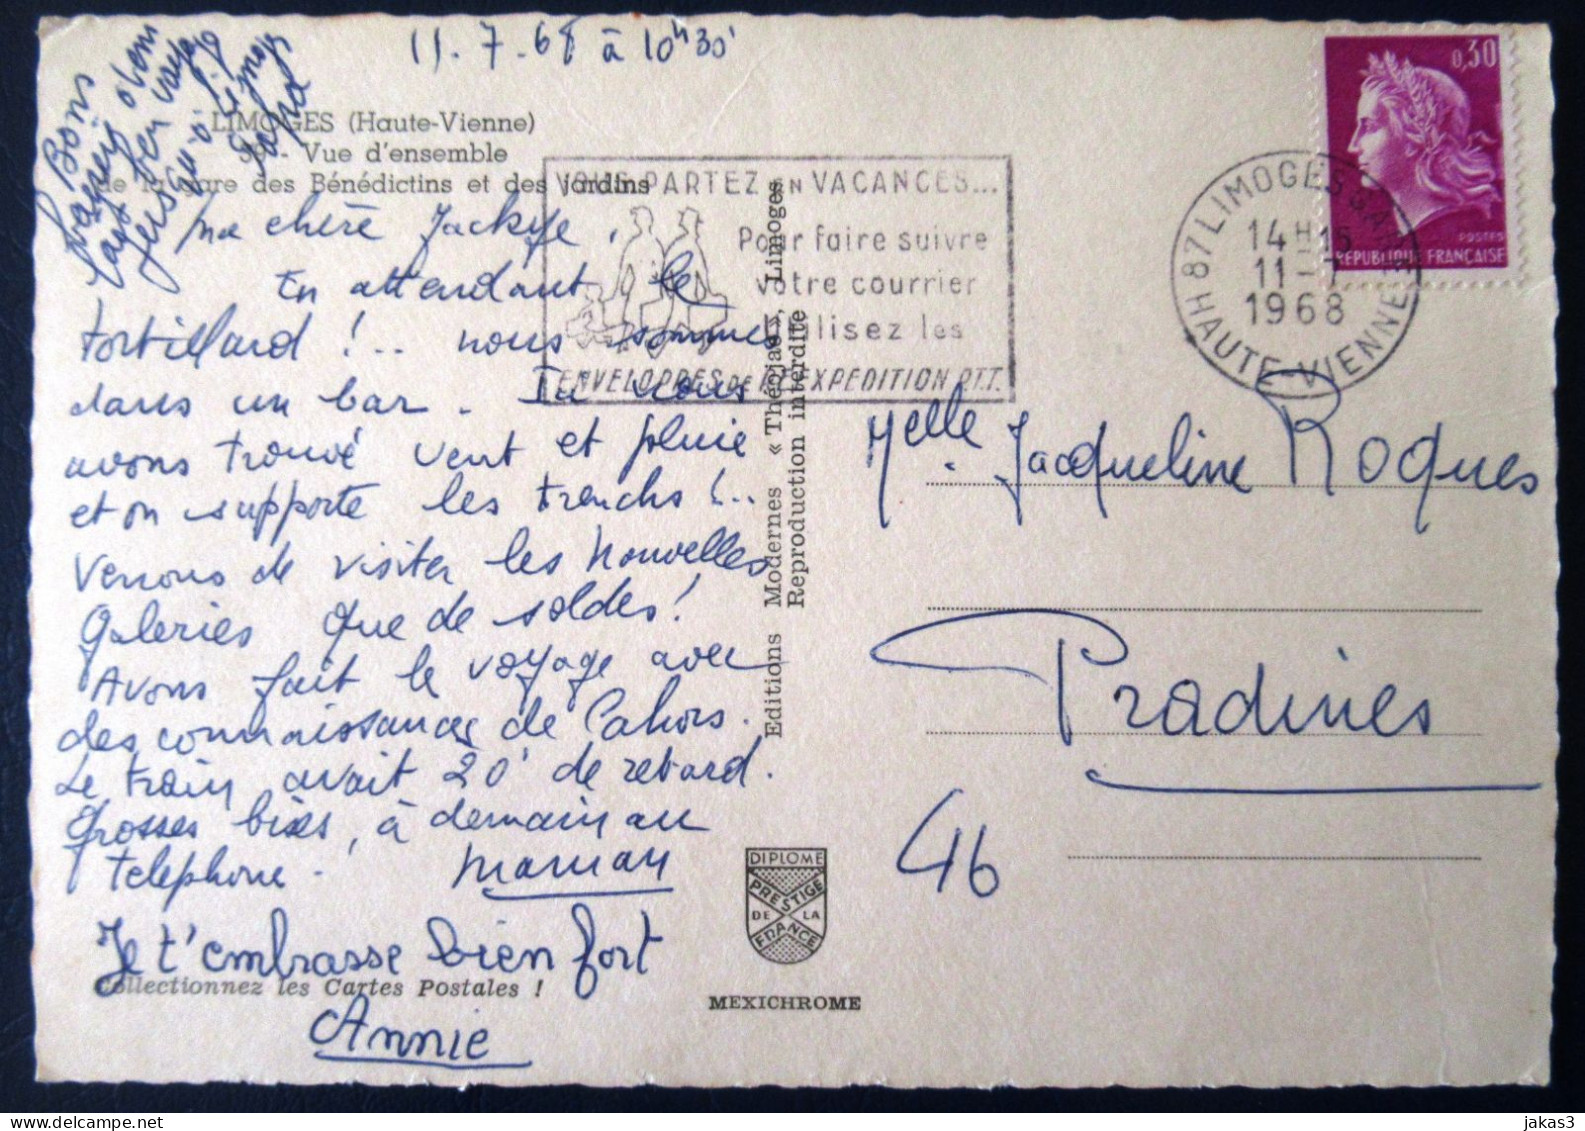 11.7.68 à 10h30'
LIMOGES (Haute-Vienne)
39 - Vue d'ensemble
de la gare des Bénédictins et des Jardins
Bons
baisers
jusqu'à Limoges
Papa
ma chère Jackye,
En attendant le
tortillard !.. nous sommes
dans un bar. Ici nous
avons trouvé vent et pluie
et on supporte les trenchs !..
Venons de visiter les Nouvelles
Galeries que de soldes !
Avons fait le voyage avec
des connaissances de Cahors.
Le train avait 20' de retard.
Grosses bises, à demain au
telephone.
maman
Je t'embrasse bien fort
Annie
Collectionnez les Cartes Postales !
VOUS PARTEZ EN VACANCES...
Pour faire suivre
votre courrier
utilisez les
ENVELOPPES DE REEXPEDITION P.T.T.
Editions Modernes « Théojac », Limoges
Reproduction interdite
DIPLOME
PRESTIGE
DE LA
FRANCE
MEXICHROME
0,30
POSTES
REPUBLIQUE FRANÇAISE
87 LIMOGES GARE
14 H 15
11 - 7
1968
HAUTE-VIENNE
Melle Jacqueline Roques
Pradines
46
jakas3